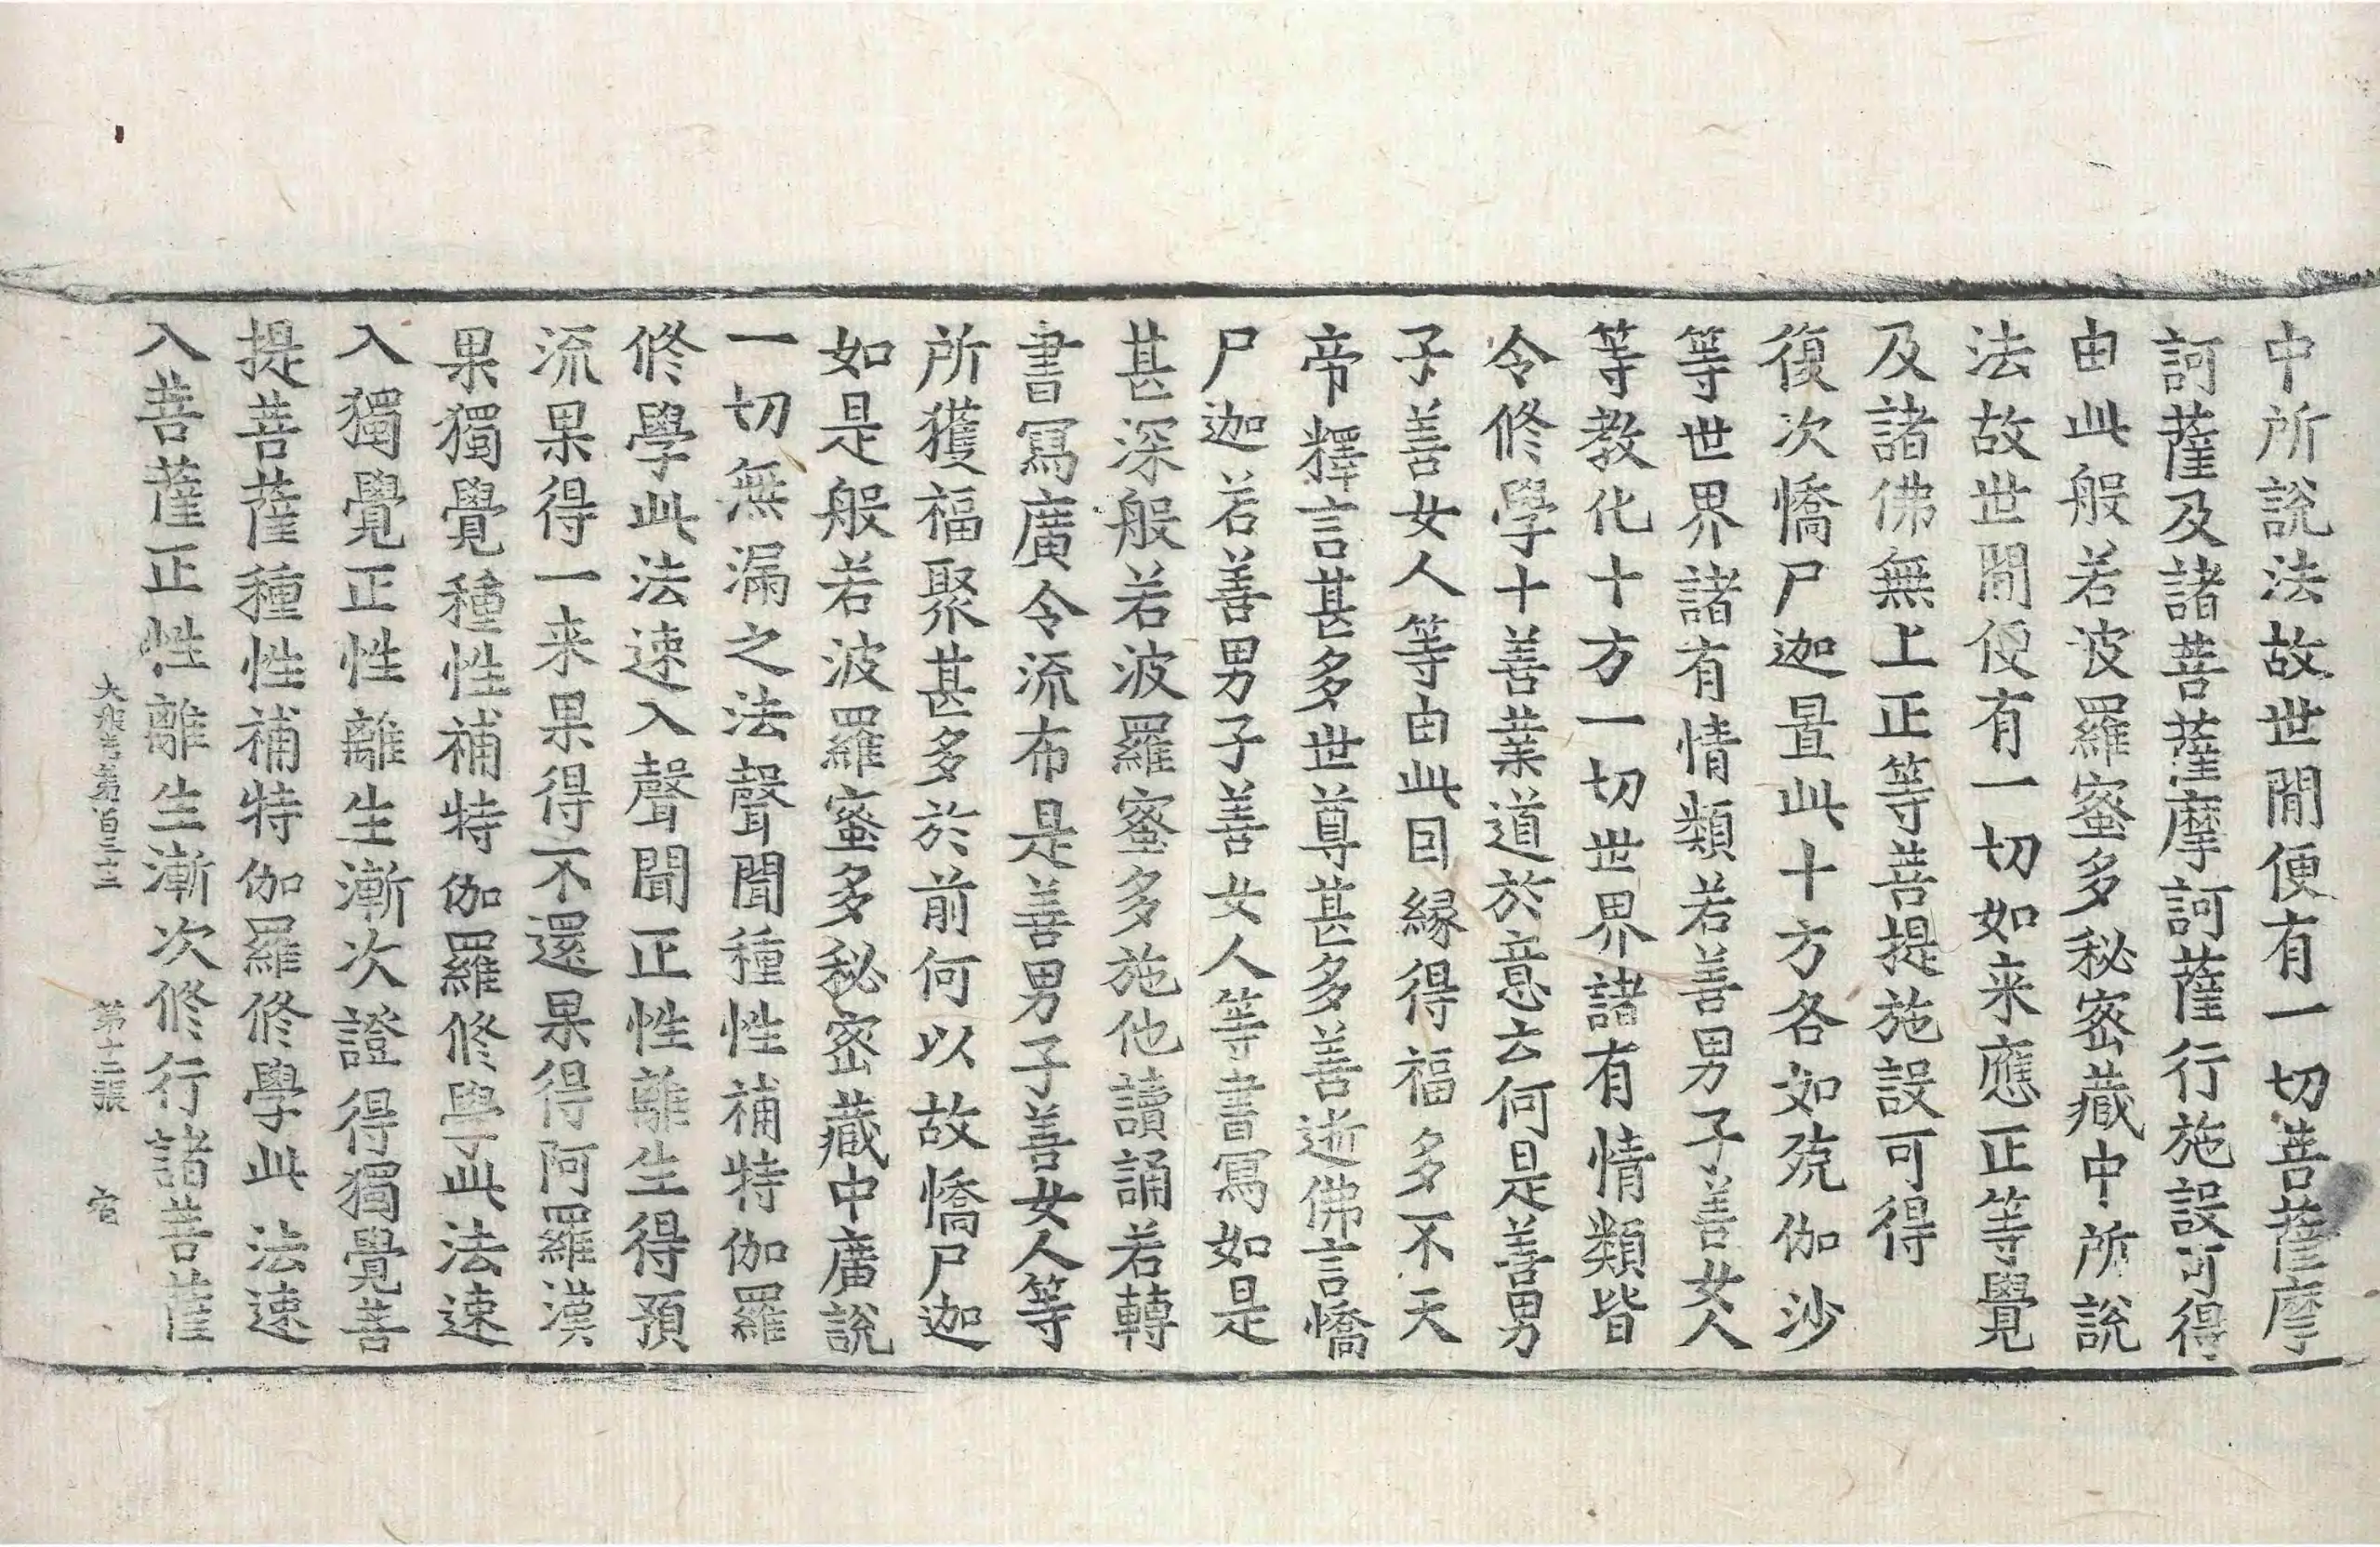 中所説法故世間便有一切菩薩摩
訶薩及諸菩薩摩訶薩行施設可得
由此般若波羅蜜多秘密藏中所説
法故世間便有一切如来應正等覺
及諸佛無上正等菩提施設可得
復次憍尸迦置此十方各如殑伽沙
等世界諸有情類若善男子善女人
等教化十方一切世界諸有情類皆
令修學十善業道於意云何是善男
子善女人等由此因縁得福多不天
帝釋言甚多世尊甚多善逝佛言憍
尸迦若善男子善女人等書寫如是
甚深般若波羅蜜多施他讀誦若轉
書寫廣令流布是善男子善女人等
所獲福聚甚多於前何以故憍尸迦
如是般若波羅蜜多秘密藏中廣説
一切無漏之法聲聞種性補特伽羅
修學此法速入聲聞正性離生得預
流果得一来果得不還果得阿羅漢
果獨覺種性補特伽羅修學此法速
入獨覺正性離生漸次證得獨覺菩
提菩薩種性補特伽羅修學此法速
入菩薩正性離生漸次修行諸菩薩
大般若第百三十二 第十二張 宿